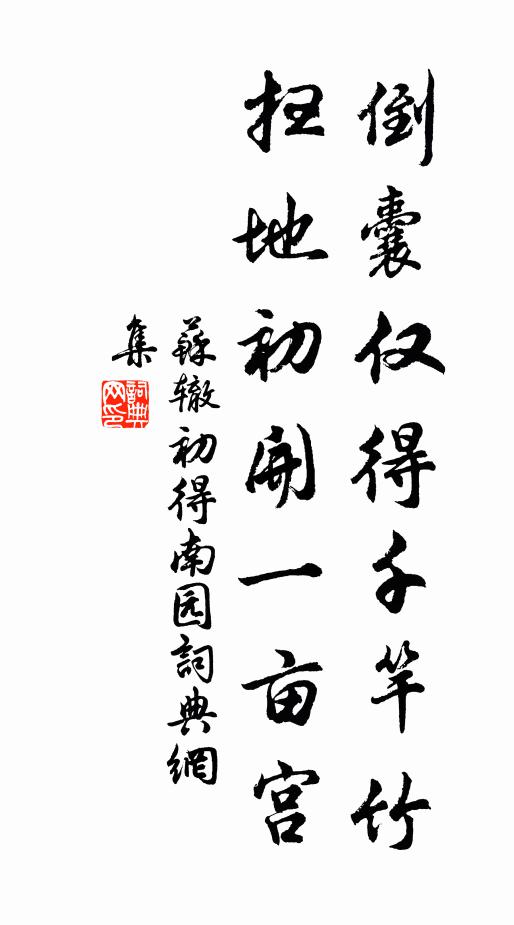 倒囊仅得千竿竹
扫地初開一亩宫
蘇辙初得南园詞典網
集
詞典
网印